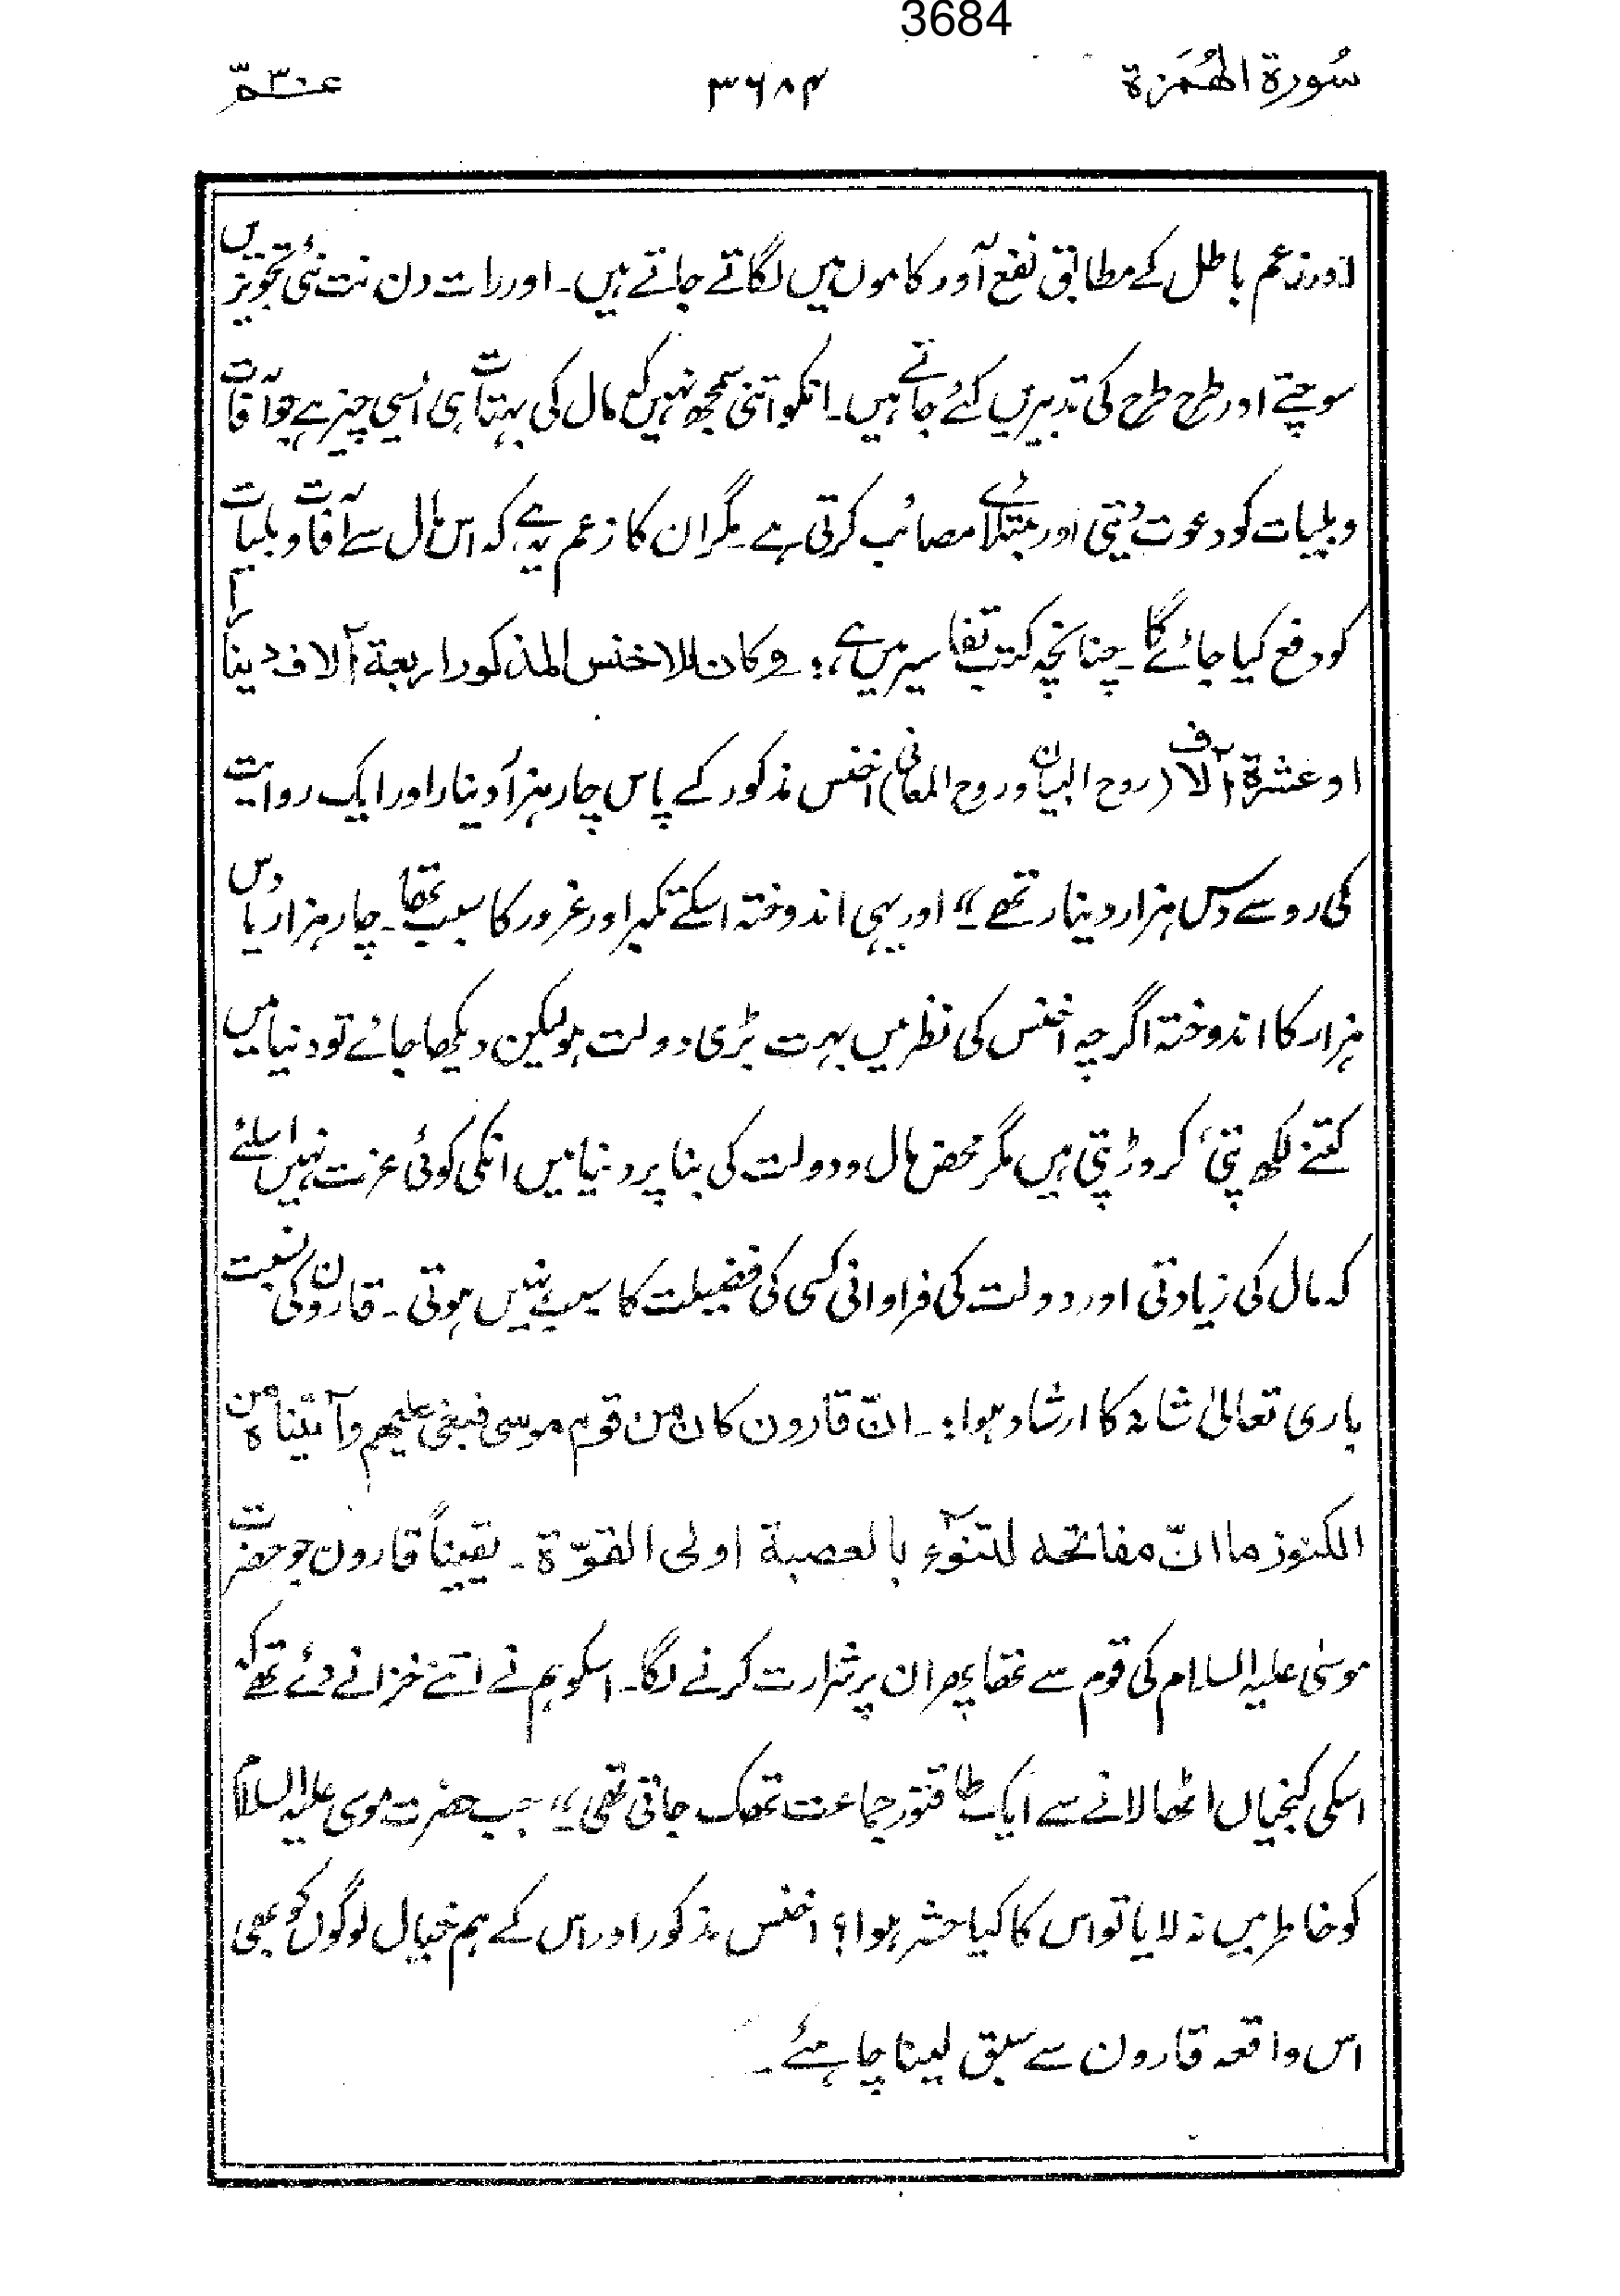 3684
سُورة الهُمَزة ۳۶۸۴ عمّ ۳۰
اور زعم باطل کے مطابق نفع آور کاموں میں لگاتے جاتے ہیں۔ اور رات دن نت نئی تجویزیں
سوچتے اور طرح طرح کی تدبیریں کئے جاتے ہیں۔ انکو اتنی سمجھ نہیں کہ مال کی بہتات ہی ایسی چیز ہے جو آفات
وبلیات کو دعوت دیتی اور مبتلائے مصائب کرتی ہے۔ مگر ان کا زعم یہ ہے کہ اس مال سے آفات وبلیات
کو دفع کیا جائے گا۔ چنانچہ کتب تفاسیر میں ہے،: وکان للاخنس المذکور اربعة آلاف دینار
او عشرة آلاف (روح البیان و روح المعانی) اخنس مذکور کے پاس چار ہزار دینار اور ایک روایت
کی رو سے دس ہزار دینار تھے ۔" اور یہی اندوختہ اسکے تکبر اور غرور کا سبب تھا۔ چار ہزار یا دس
ہزار کا اندوختہ اگر چہ اخنس کی نظر میں بہت بڑی دولت ہو لیکن دیکھا جائے تو دنیا میں
کتنے لکھ پتی، کروڑ پتی ہیں مگر محض مال و دولت کی بنا پر دنیا میں انکی کوئی عزت نہیں اسلئے
کہ مال کی زیادتی اور دولت کی فراوانی کسی کی فضیلت کا سبب نہیں ہوتی۔ قارون کی نسبت
باری تعالیٰ شانہ کا ارشاد ہوا:۔ انّ قارون کان من قوم موسی فبغی علیهم وآتیناہ من
الکنوز ما انّ مفاتحه لتنوٓء بالعصبة اولی القوّة۔ یقیناً قارون جو حضرت
موسیٰ علیہ السلام کی قوم سے تھا پھر ان پر شرارت کرنے لگا۔ اسکو ہم نے اتنے خزانے دئے تھے کہ
اسکی کنجیاں اٹھا لانے سے ایک طاقتور جماعت تھک جاتی تھی۔" جب حضرت موسی علیہ السلام
کو خاطر میں نہ لایا تو اس کا کیا حشر ہوا؟ اخنس مذکور اور اس کے ہم خیال لوگوں کو بھی
اس واقعہ قارون سے سبق لینا چاہئے۔